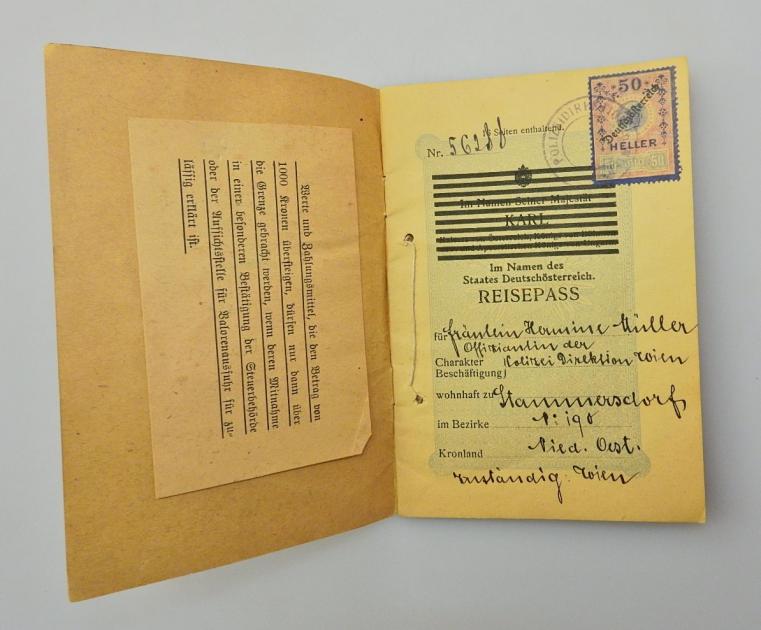 Werte und Zahlungsmittel, die den Betrag von
1000 Kronen übersteigen, dürfen nur dann über
die Grenze gebracht werden, wenn deren Mitnahme
in einer besonderen Bestätigung der Steuerbehörde
oder der Aufsichtsstelle für Valorenausfuhr für zu-
lässig erklärt ist.
50
Deutschösterreich
HELLER
16 Seiten enthaltend.
Nr.
Im Namen Seiner Majestät
KARL
Im Namen des
Staates Deutschösterreich.
REISEPASS
für Fräulein Hermine Müller
Offiziantin der
Charakter Polizei Direktion Wien
Beschäftigung
wohnhaft zu Stammersdorf
im Bezirke N: 190
Kronland Nied. Oest.
zuständig: Wien